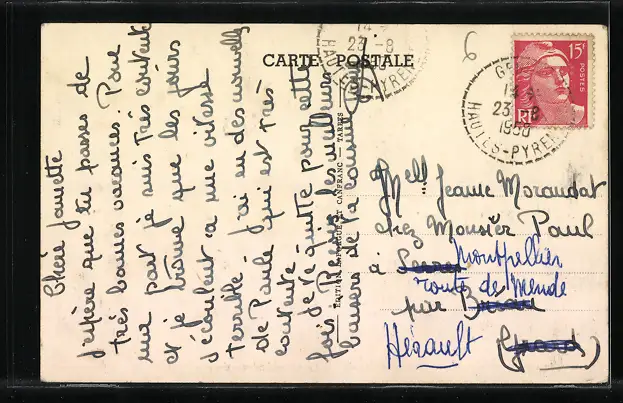 CARTE POSTALE
Chère Janette
J'espère que tu passes de
très bonnes vacances. Pour
ma part je suis très contente
et je trouve que les jours
s'écoulent à une vitesse
terrible. J'ai eu des nouvelles
de Paule qui est très
contente.
Je te quitte pour cette
fois. Reçois les meilleurs
baisers de ta cousine
CANFRANC — TARBES
23 -8
HAUTES-PYRENEES
15F
POSTES
RF
23 -8
1950
HAUTES-PYRENEES
6
Mell Jeanne Morandat
chez Monsier Paul
à Montpellier
route de Mende
par
Hérault